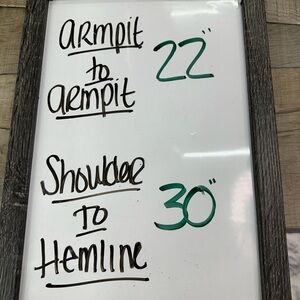 ARmpit
to 22"
ARmpit
Shoulder
TO 30"
Hemline